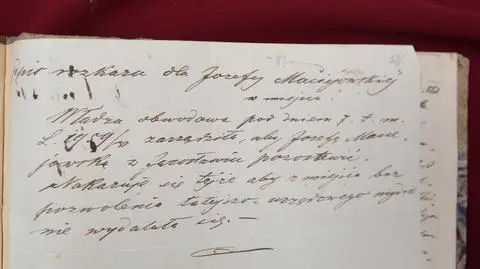 Odpis rozkazu dla Józefy Maciejowskiej
w miejscu.
Władza obwodowa pod dniem 7. t. m.
L. 1959/ zarządziła, aby Józefę Macie-
jowską z Jarosławia
Nakazuje się tejże aby z miejsca bez
pozwolenia tutejszo-urzędowego
nie wydalała się. –